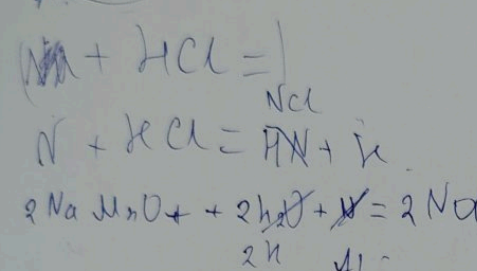 + HCl =
NCl
N + HCl = HN + H
2 Na MnO4 + 2h2O + H = 2 Na
2H